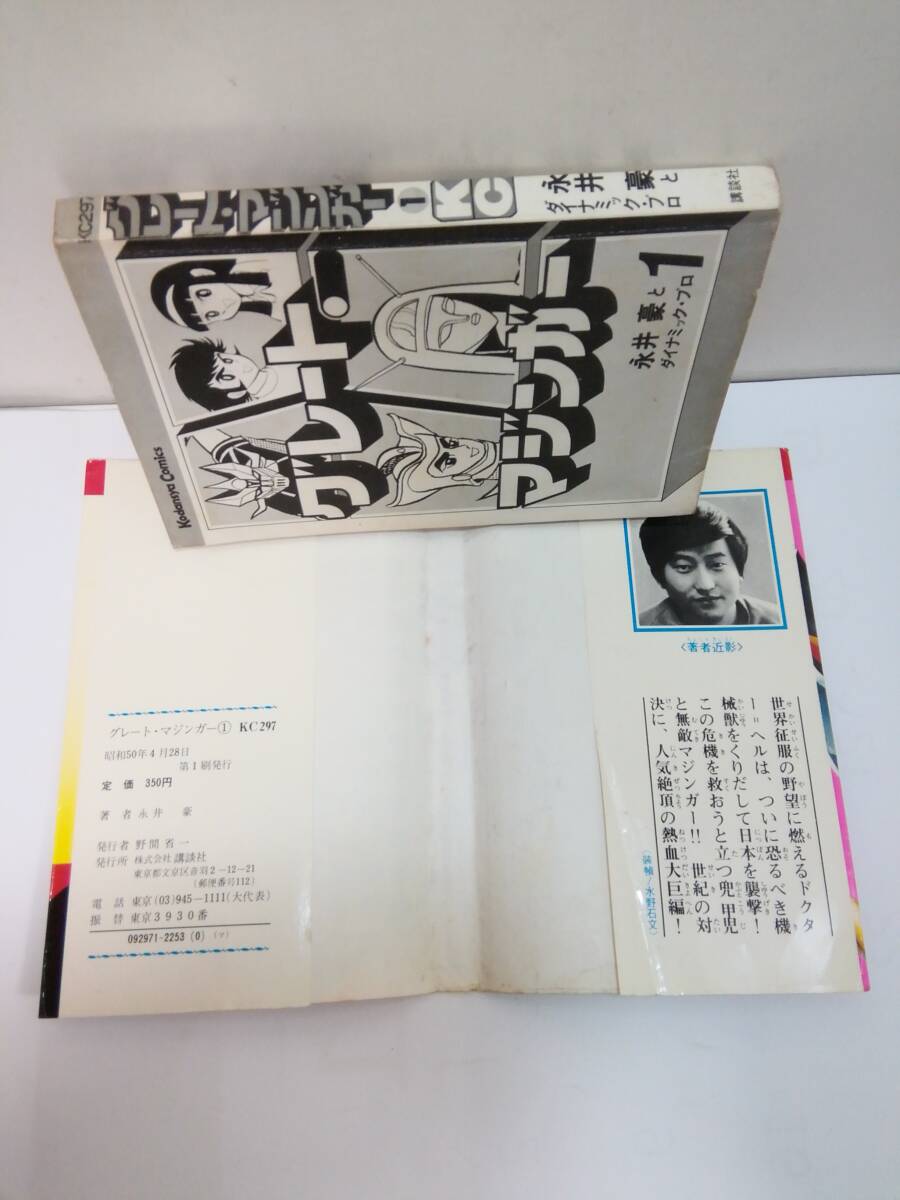 KC297
グレート・マジンガー
1
KC
永井 豪と
ダイナミック・プロ
講談社
グレート・
マジンガー
1
永井 豪と
ダイナミック・プロ
Kodansya Comics
〈著者近影〉
世界征服の野望に燃えるドクタ
ー=ヘルは、ついに恐るべき機
械獣をくりだして日本を襲撃!
この危機を救おうと立つ兜甲児
と無敵マジンガー!! 世紀の対
決に、人気絶頂の熱血大巨編!
〈装幀/水野石文〉
グレート・マジンガー① KC297
昭和50年4月28日
第1刷発行
定 価 350円
著 者 永 井 豪
発行者 野間省一
発行所 株式会社 講談社
東京都文京区音羽2-12-21
(郵便番号112)
電 話 東京(03)945-1111(大代表)
振 替 東京3930番
092971-2253 (0) (マ)